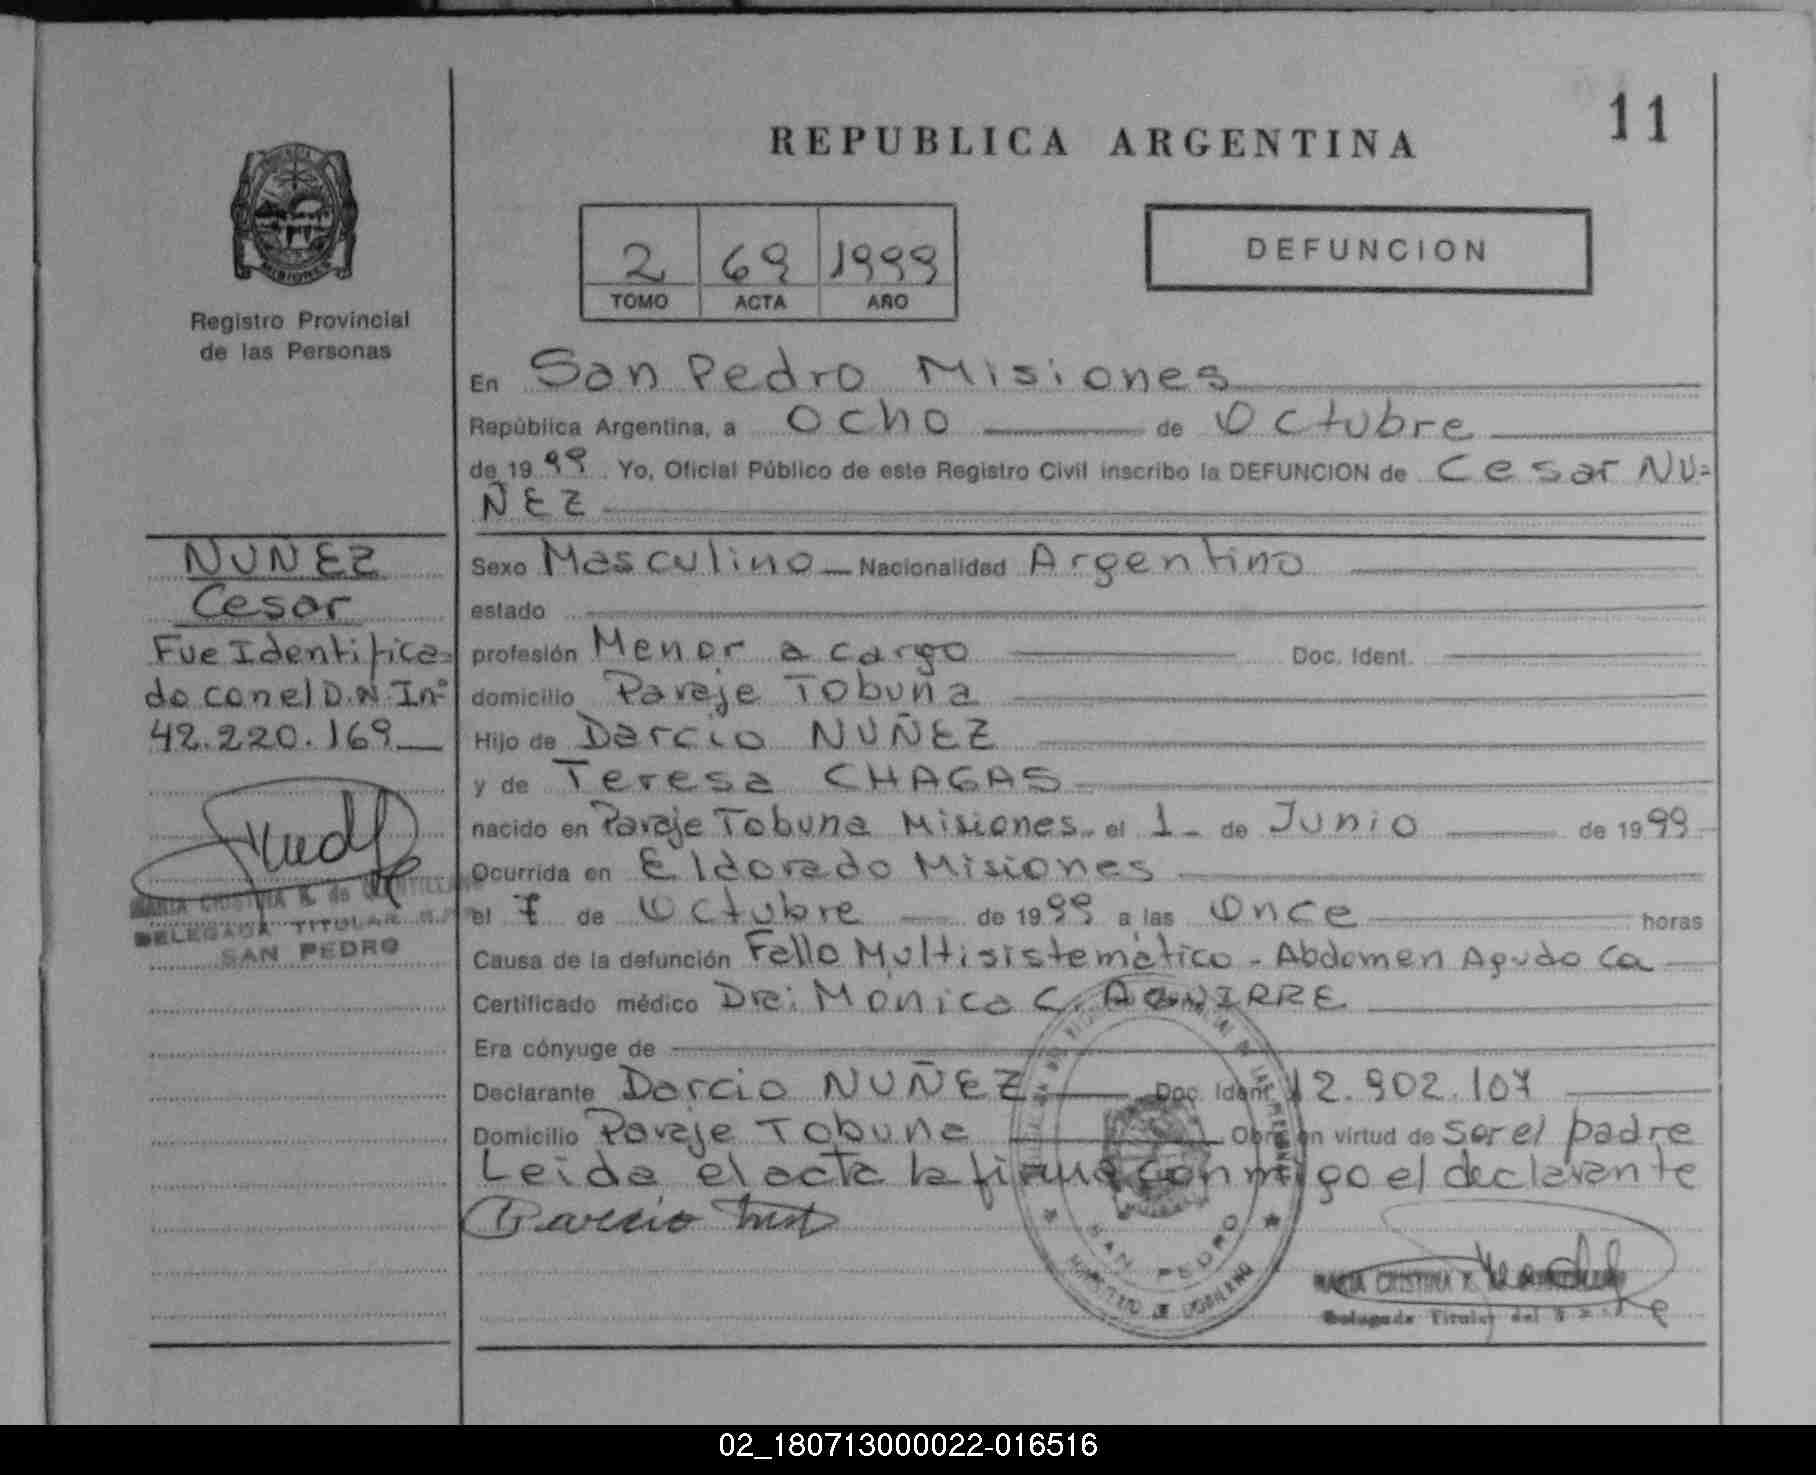 11
REPUBLICA ARGENTINA
MISIONES
Registro Provincial
de las Personas
2 69 1999
TOMO ACTA AÑO
DEFUNCION
En San Pedro Misiones
República Argentina, a Ocho de Octubre
de 1999. Yo, Oficial Público de este Registro Civil inscribo la DEFUNCION de Cesar NU=
ÑEZ
NUÑEZ
Cesar
Fue Identifica=
do con el D.N.I nº
42.220.169
MARIA CRISTINA
DELEGADA TITULAR
SAN PEDRO
Sexo Masculino Nacionalidad Argentino
estado
profesión Menor a cargo Doc. Ident.
domicilio Paraje Tobuna
Hijo de Darcio NUÑEZ
y de Teresa CHAGAS
nacido en Paraje Tobuna Misiones el 1 de Junio de 1999
Ocurrida en Eldorado Misiones
el 7 de Octubre de 1999 a las Once horas
Causa de la defunción Fallo Multisistemático - Abdomen Agudo Ca
Certificado médico Dra: Monica C. AGUIRRE
Era cónyuge de
Declarante Darcio NUÑEZ Doc. Ident. 12.902.107
Domicilio Paraje Tobuna Obra en virtud de Ser el padre
Leida el acta la firma conmigo el declarante
SAN PEDRO
MINISTERIO DE GOBIERNO
MARIA CRISTINA
Delegada Titular del
02_180713000022-016516